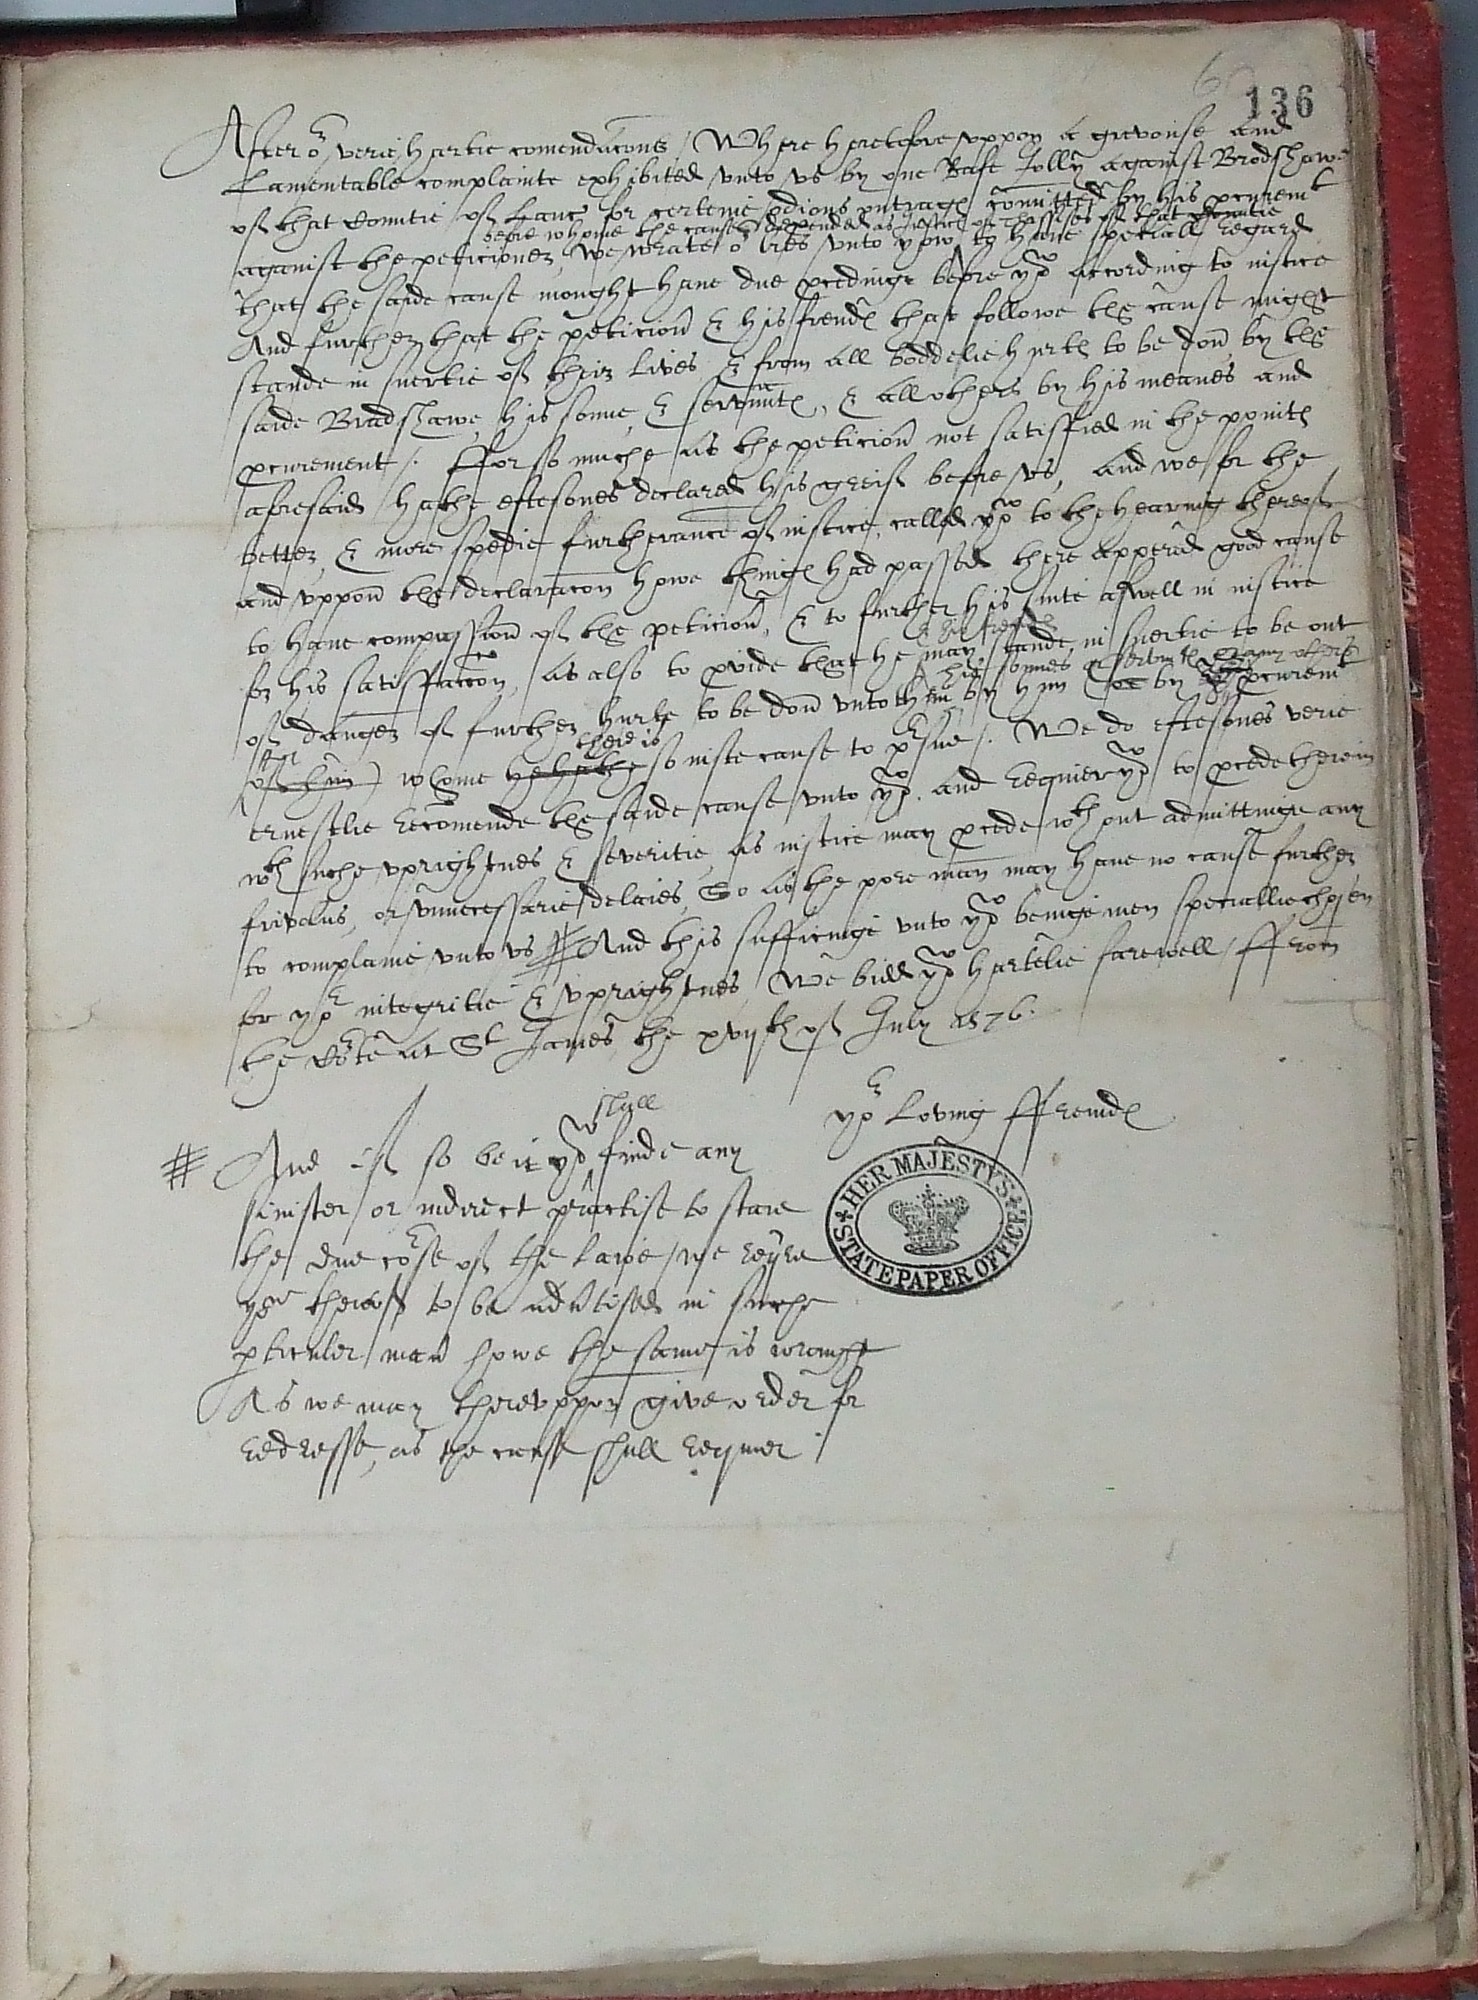 136
After or verie hartie comendacons / Where heretofore vppon a grevouse and
Lamentable complainte exhibited vnto vs by one Rafe Jolly against Bradshawe
of that Countie of Lanc for certeine odious outrages comitted by his procuremt
before whome the cause depended as Justices of Thassises of that Countie
against the peticioner, we wrate or lres vnto yow to have speciall regard
that the saide cause mought have due procedinge before yow according to iustice
And further that the peticionr & his frendes that followe the cause might
stande in suertie of their Lives & from all boddelie hurtes to be don by the
saide Bradshawe, his sonne, & servantes, & all others by his meanes and
procurement /. Fforsomuche as the peticionr not satisfied in the pointes
aforesaid hathe eftesones declared his greif before vs, and we for the
better & more spedie furtherance of iustice, called yow to the hearing thereof
and vppon the declaracon howe thinges had passed there appered good cause
to have compassion of the peticionr, & to further his suite aswell in iustice
& his frendes
for his satisfaccon, as also to provide that he may stande in suertie to be out
his sonnes or servantes or any others
of danger of further hurte to be don vnto them by him or by procuremt
there is
of him) whome he hathe so iuste cause to pursue /. We do eftesones verie
ernestlie recomende the saide cause vnto yow. and requier yow to procede therein
wth suche vprightnes & severitie, as iustice may procede wthout admittinge any
frivolus, or vnnecessarie delaies, So as the pore man may have no cause further
to complaine vnto vs # And this sufficinge vnto yow beinge men speciallie chosen
for yor integritie & vprightnes, We bidd yow hartelie farewell / Ffrom
the Corte at St James the xvijth of July 1576.
yor Loving ffrendes
shall
# And if so be it yow finde any
sinister or indirect practise to staie
the due corse of the Lawe / we requre
yow thereof to be advtised in suche
pticuler maner howe the same is wrought
As we may therevppon give order for
redresse, as the cause shall requier
HER MAJESTY'S
STATE PAPER OFFICE